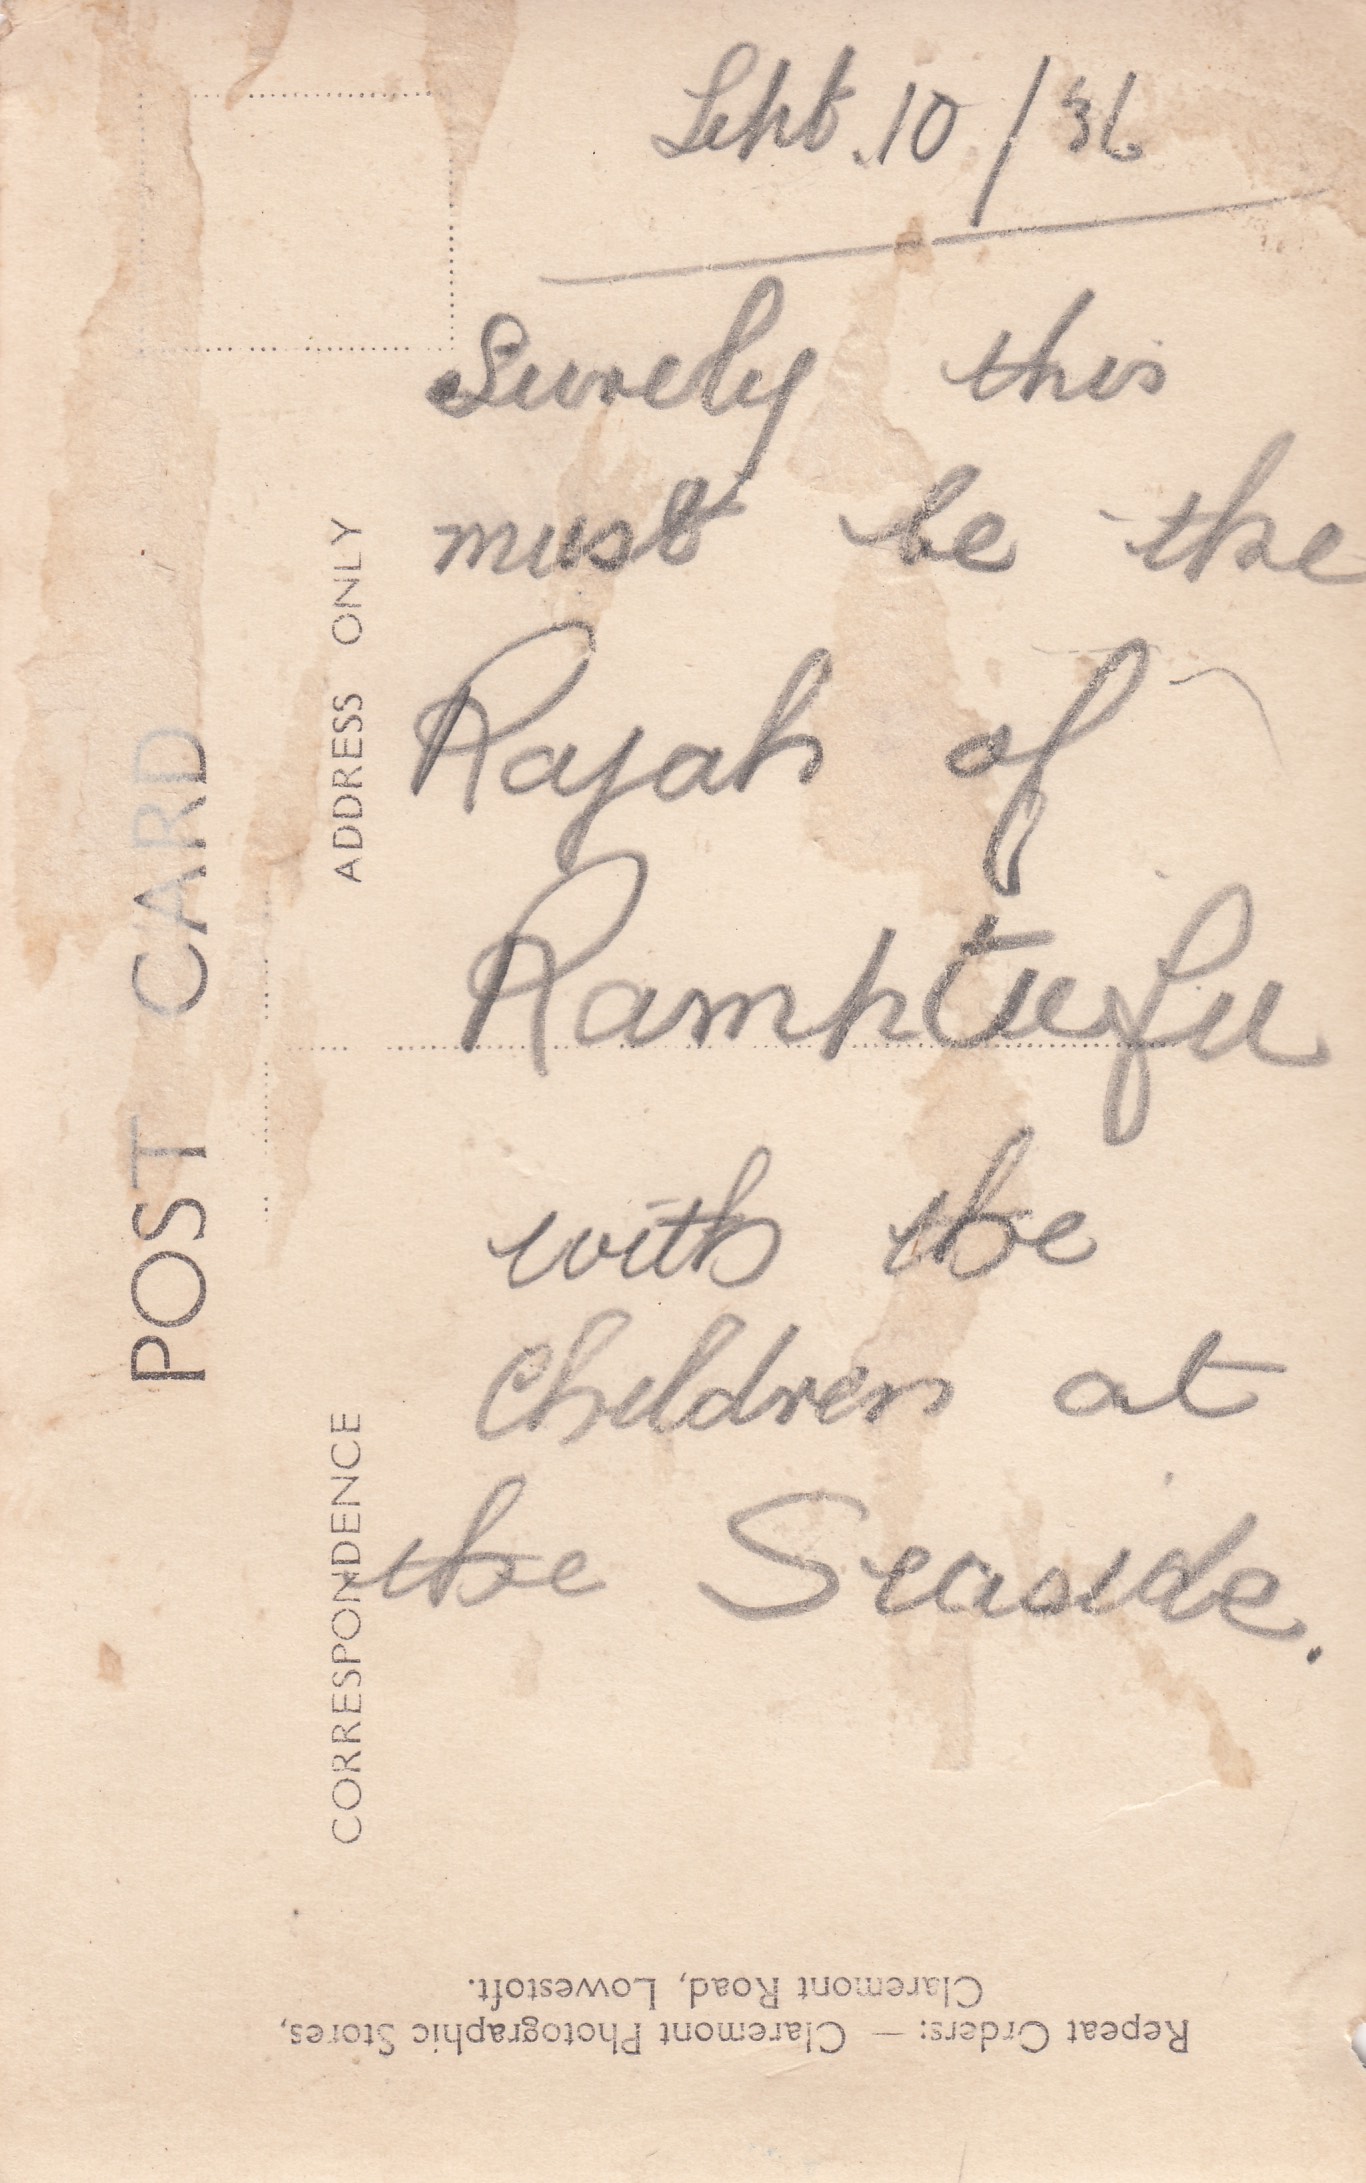 Sept. 10/36
Surely this
must be the
Rajah of
with the
Children at
the Seaside.
POST CARD
ADDRESS ONLY
CORRESPONDENCE
Repeat Orders: — Claremont Photographic Stores,
Claremont Road, Lowestoft.